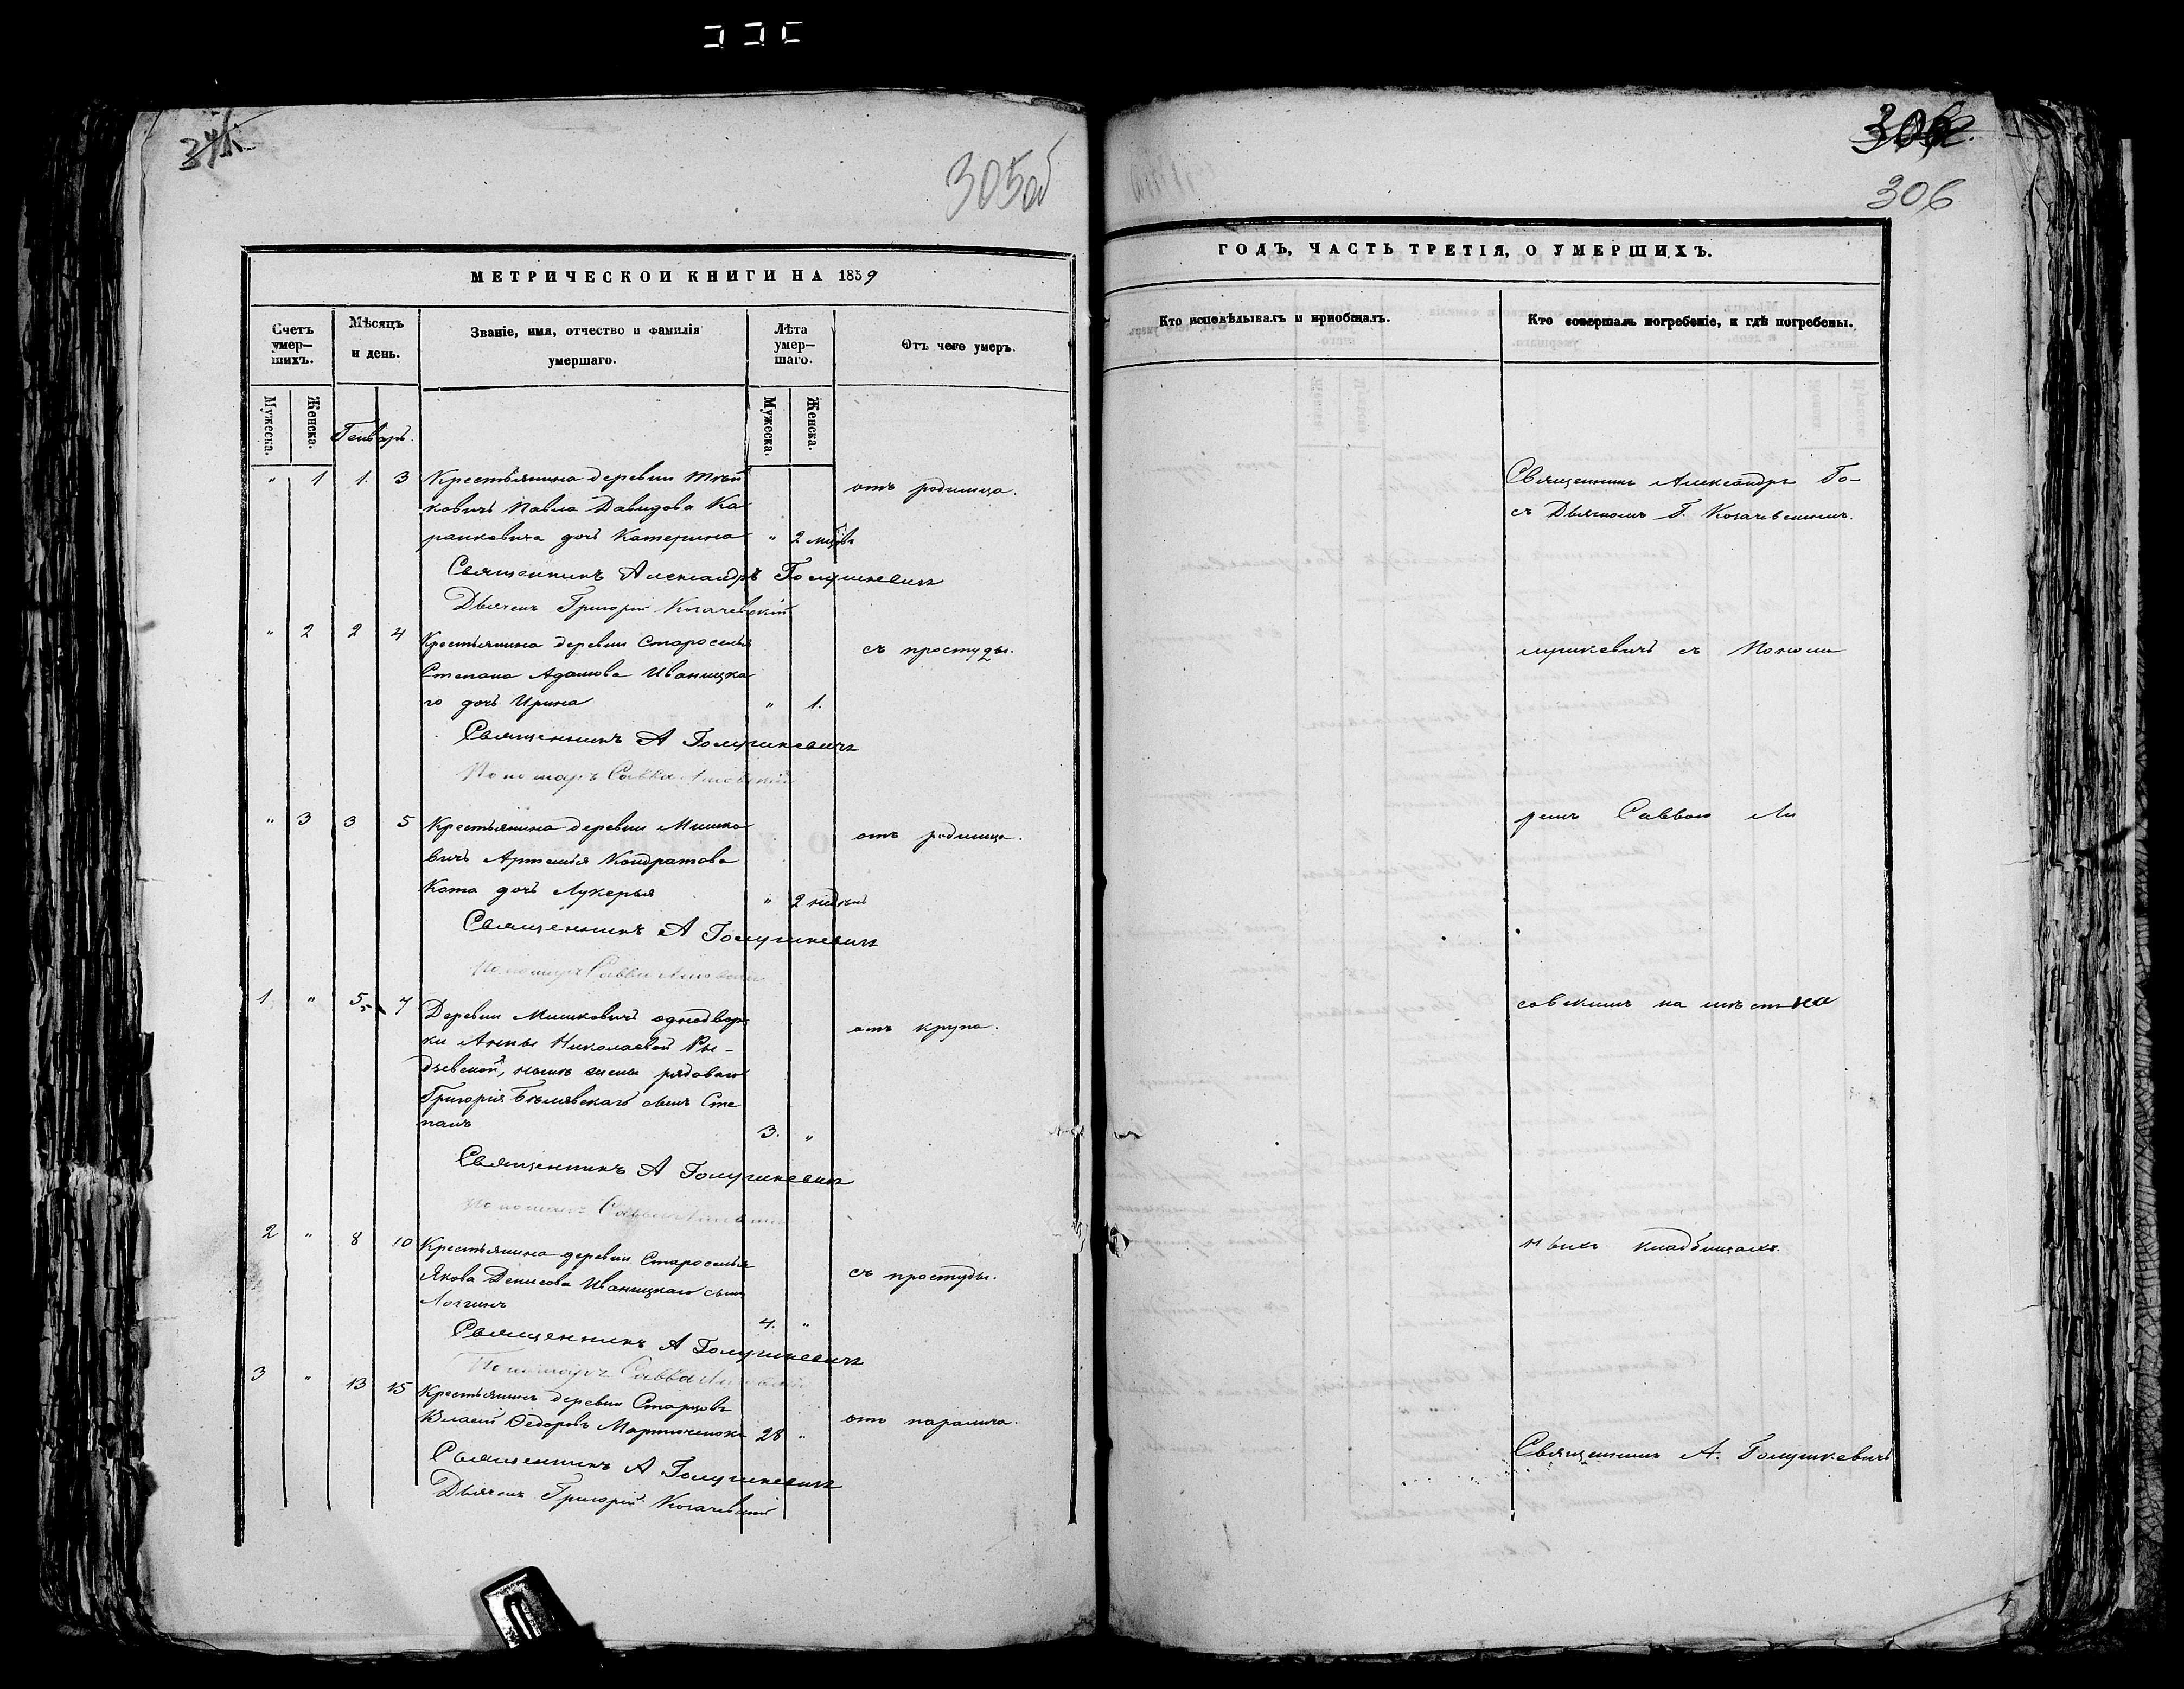 305об
МЕТРИЧЕСКОЙ КНИГИ НА 1859
Счетъ умер-шихъ.
Мѣсяцъ и день.
Званіе, имя, отчество и фамилія умершаго.
Лѣта умер-шаго.
Отъ чего умеръ.
Мужеска.
Женска.
Мужеска.
Женска.
Генварь.
" 1 1. 3 Крестьянина деревни Миш отъ родимца.
ковичъ Павла Давидова Ка
ранкевича дочь Катерина " 2 мцовъ
Священникъ Александръ Голушкевичъ
Дьячекъ Григорій Козачевскій
" 2 2 4 Крестьянина деревни Староселья съ простуды.
Степана Адамова Иваницка
го дочь Ирина " 1.
Священникъ А Голушкевичъ
Пономарь Савва Лисовскій
" 3 3 5 Крестьянина деревни Мишко отъ родимца.
вичъ Артемія Кондратова
Ката дочь Лукерья " 2 недѣль
Священникъ А Голушкевичъ
Пономарь Савва Лисовскій
1 " 5 7 Деревни Мишковичъ однодвор отъ крупа.
ки Анны Николаевой Ры-
дзевской, нынѣ жены рядоваго
Григорія Бѣлявскаго сынъ Сте
панъ 3. "
Священникъ А Голушкевичъ
Пономарь Савва Лисовскій
2 " 8 10 Крестьянина деревни Староселья съ простуды.
Якова Денисова Иваницкаго сынъ
Логгинъ 4. "
Священникъ А Голушкевичъ
Пономарь Савва Лисовскій
3 " 13 15 Крестьянинъ деревни Старцовъ отъ паралича.
Власій Ѳедоровъ Мартюченокъ 28 "
Священникъ А Голушкевичъ
Дьячекъ Григорій Козачевскій
306
ГОДЪ, ЧАСТЬ ТРЕТІЯ, О УМЕРШИХЪ.
Кто исповѣдывалъ и пріобщалъ.
Кто совершалъ погребеніе, и гдѣ погребены.
Священникъ Александръ Го-
съ Дьячкомъ Г. Козачевскимъ.
лушкевичъ съ Понома
ремъ Саввою Ли
совскимъ на мѣстна
ныхъ кладбищахъ.
Священникъ А. Голушкевичъ